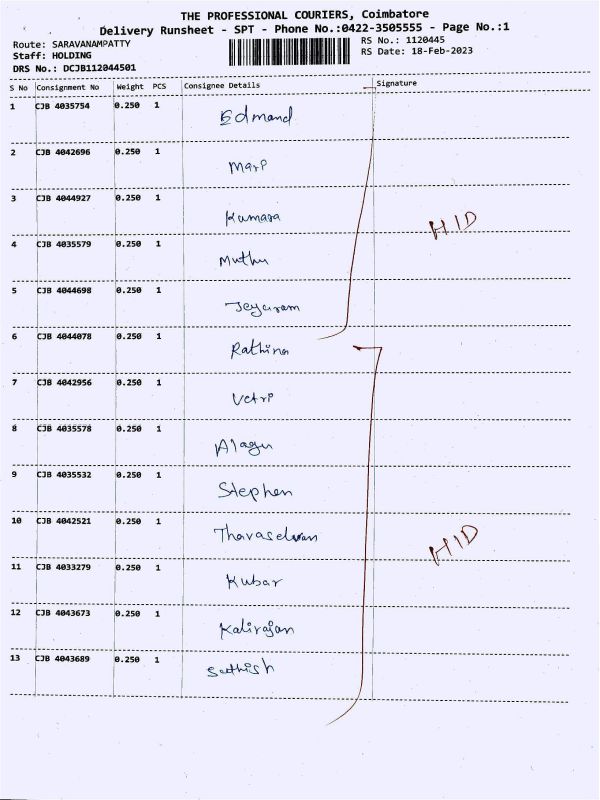 THE PROFESSIONAL COURIERS, Coimbatore
Delivery Runsheet - SPT - Phone No.:0422-3505555 - Page No.:1
Route: SARAVANAMPATTY
RS No.: 1120445
Staff: HOLDING
RS Date: 18-Feb-2023
DRS No.: DCJB112044501
S No Consignment No Weight PCS Consignee Details Signature
1 CJB 4035754 0.250 1 Edmand
2 CJB 4042696 0.250 1 Mari
3 CJB 4044927 0.250 1 Kumara HID
4 CJB 4035579 0.250 1 Muthu
5 CJB 4044698 0.250 1 Jeyaram
6 CJB 4044078 0.250 1 Rathina
7 CJB 4042956 0.250 1 Vetri
8 CJB 4035578 0.250 1 Alagu
9 CJB 4035532 0.250 1 Stephen
10 CJB 4042521 0.250 1 Tharaselvan HID
11 CJB 4033279 0.250 1 Kubar
12 CJB 4043673 0.250 1 Kalirajan
13 CJB 4043689 0.250 1 Sathish